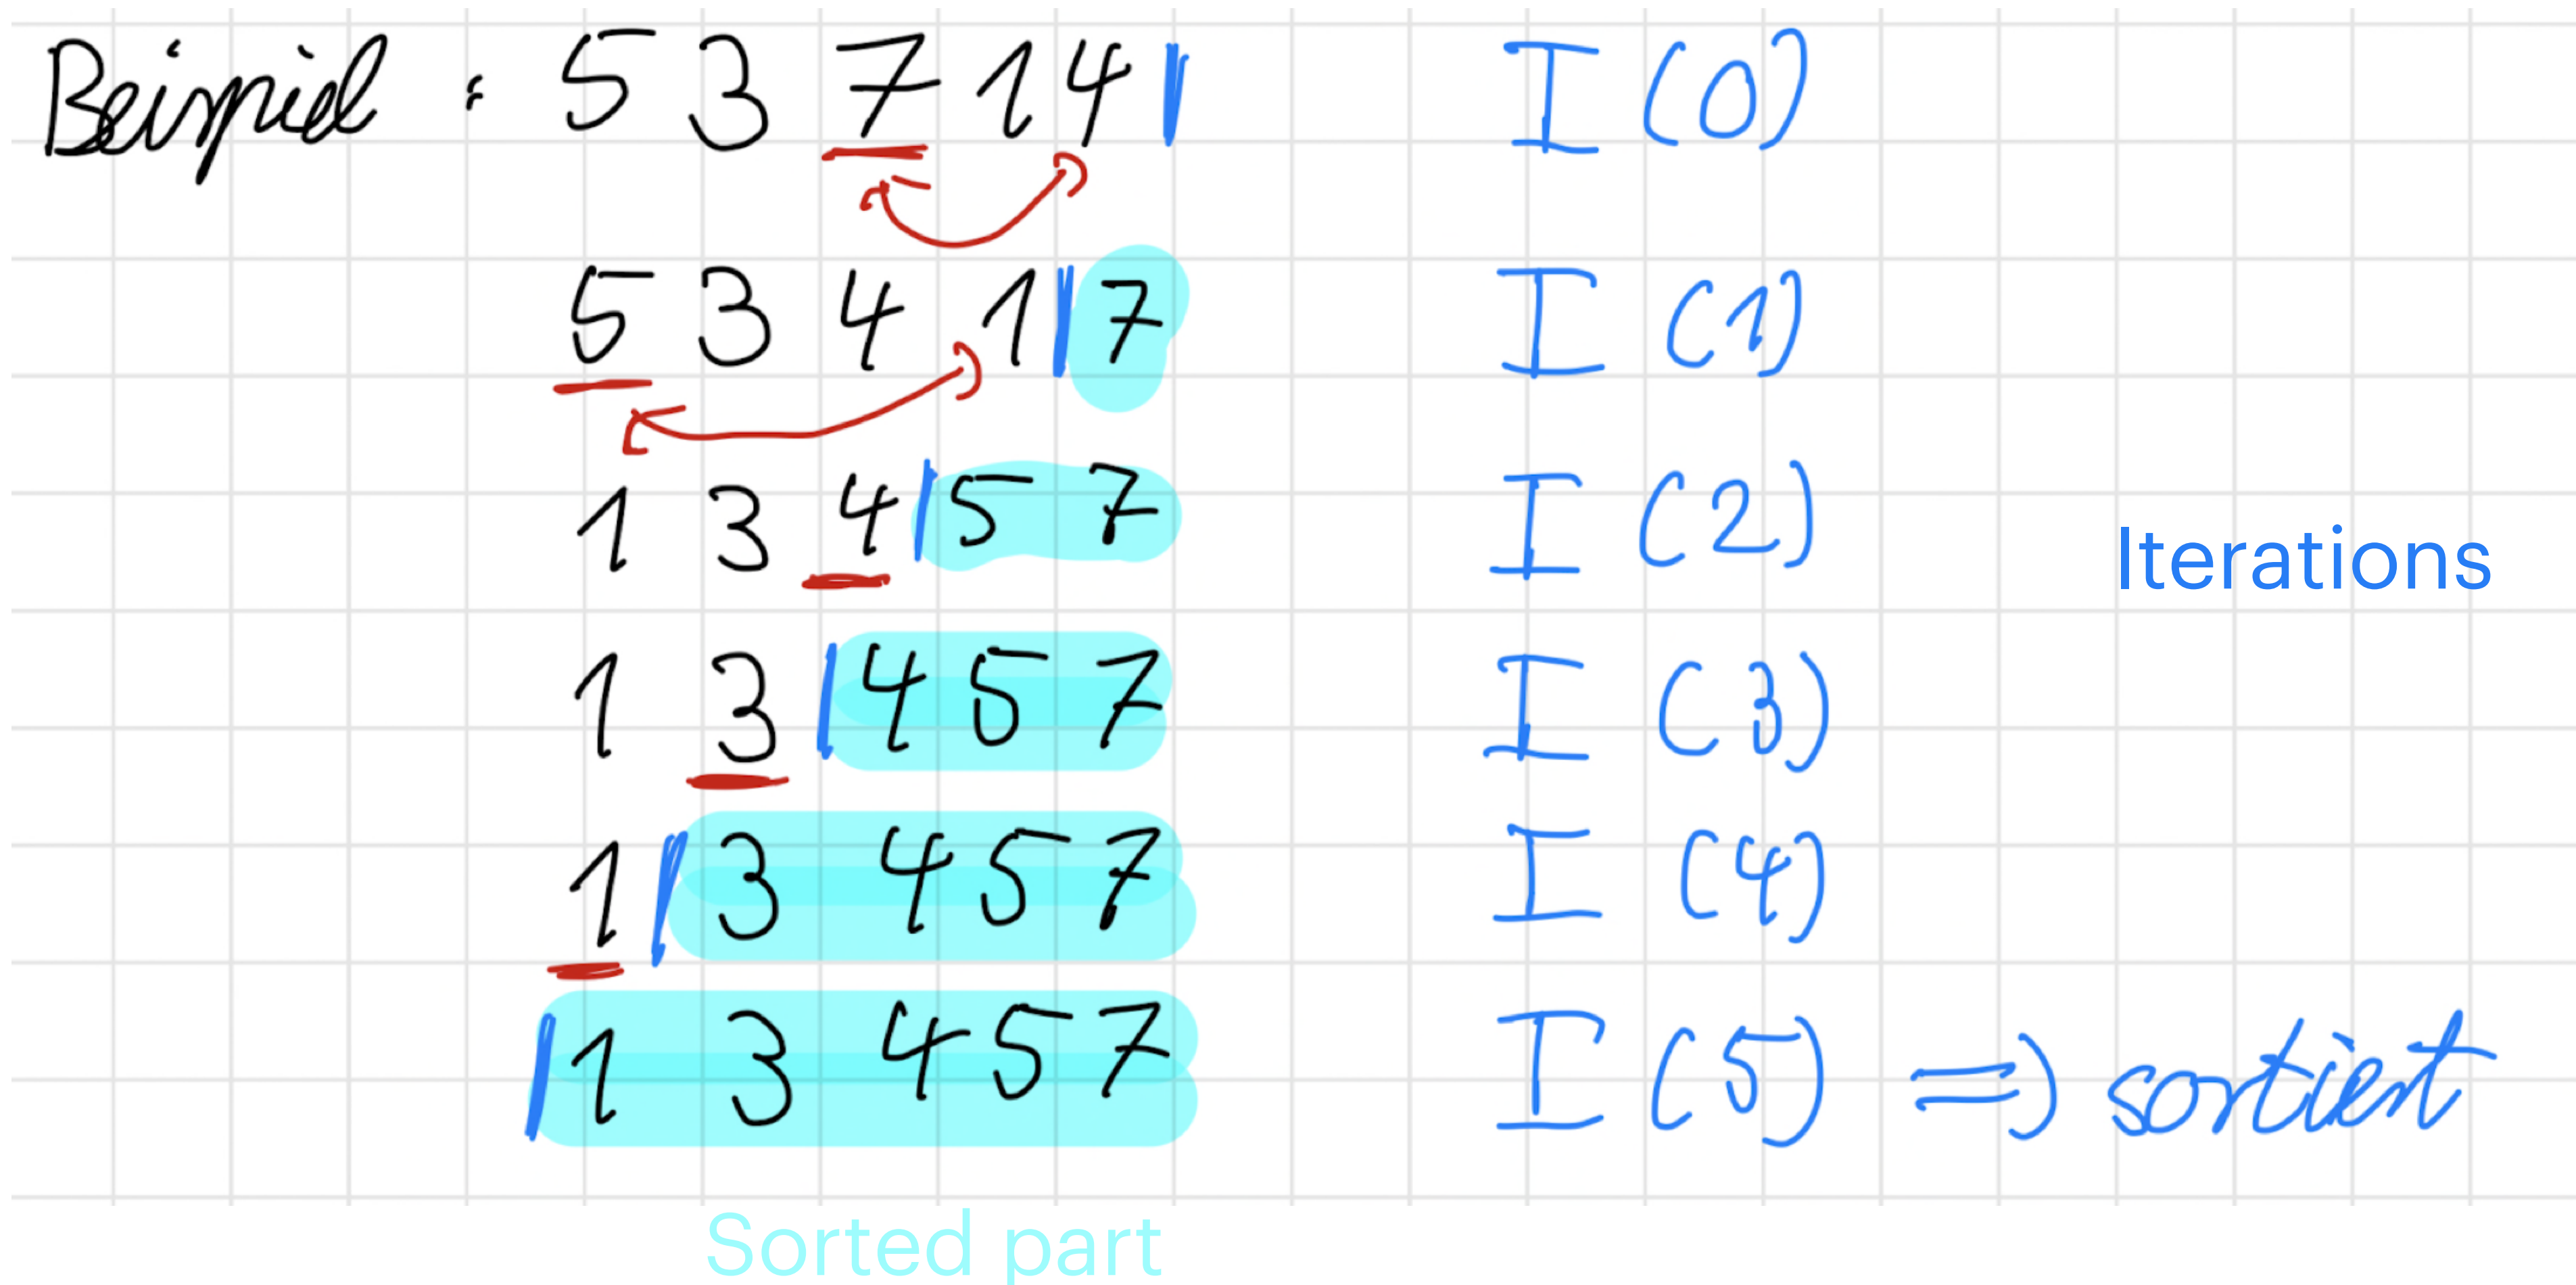 Beispiel: 5 3 7 1 4 | I (0)
5 3 4 1 | 7 I (1)
1 3 4 | 5 7 I (2)
Iterations
1 3 | 4 5 7 I (3)
1 | 3 4 5 7 I (4)
| 1 3 4 5 7 I (5) => sortiert
Sorted part